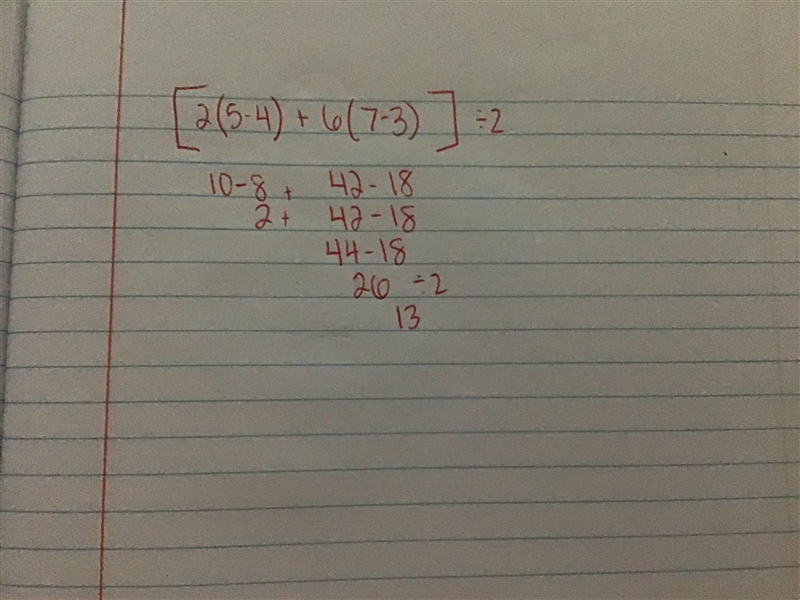 [2(5-4) + 6(7-3)] ÷2
10-8 + 42-18
2 + 42-18
44-18
26 ÷2
13